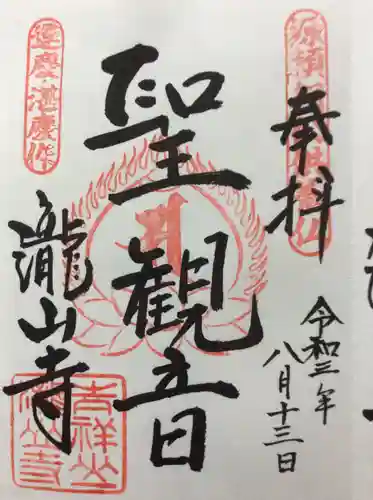 奉拝
令和三年
八月十三日
聖観音
運慶・湛慶作
瀧山寺
吉祥